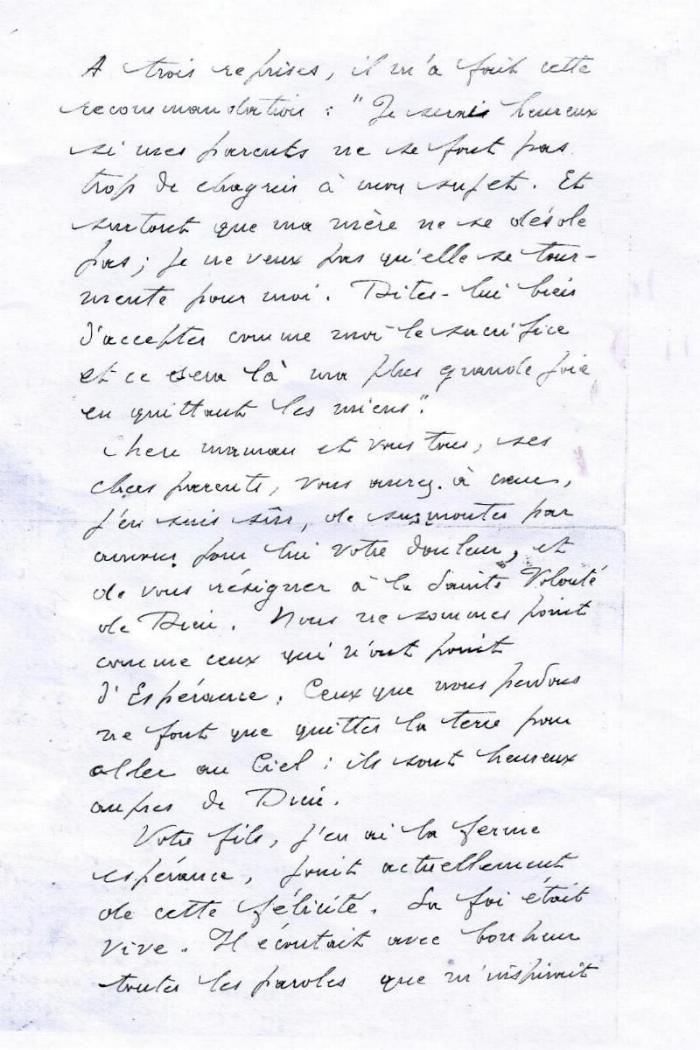 A trois reprises, il m'a fait cette
recommandation : "Je serais heureux
si mes parents ne se font pas
trop de chagrin à mon sujet. Et
surtout que ma mère ne se désole
pas ; je ne veux pas qu'elle se tour-
mente pour moi. Dites-lui bien
d'accepter comme moi le sacrifice
et ce sera là ma plus grande joie
en quittant les miens".
Chère maman et vous tous, ses
chers parents, vous aurez à cœur,
j'en suis sûr, de surmonter par
amour pour lui votre douleur, et
de vous résigner à la Sainte Volonté
de Dieu. Nous ne sommes point
comme ceux qui n'ont point
d'Espérance. Ceux que nous perdons
ne font que quitter la terre pour
aller au Ciel : ils sont heureux
auprès de Dieu.
Votre fils, j'en ai la ferme
espérance, jouit actuellement
de cette félicité. Sa foi était
vive. Il écoutait avec bonheur
toutes les paroles que m'inspirait